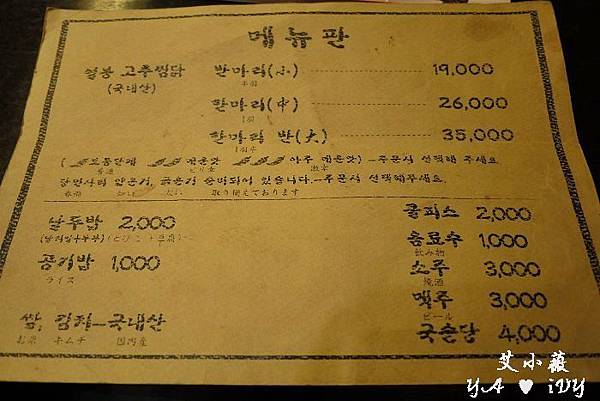 메뉴판
열봉 고추찜닭 반마리(小) 19,000
(국내산) 半羽
한마리(中) 26,000
1羽
한마리 반(大) 35,000
1羽半
(보통단계 매운맛 아주 매운맛)-주문시 선택해 주세요.
普通 ピリ辛 激辛
당면사리 얇은거, 굵은거 준비되어 있습니다.-주문시 선택해주세요.
春雨 細い 太い 取り揃えております
날주밥 2,000
(날치알+주먹밥)
공기밥 1,000
ライス
쌀, 김치-국내산
お米 キムチ 国内産
쿨피스 2,000
음료수 1,000
飲み物
소주 3,000
焼酒
맥주 3,000
ビール
국순당 4,000
艾小薇
YA ♥ iVY